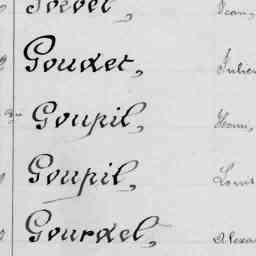 Goudet, Julien
Goupil, Henri,
Goupil, Louis
Gourdel, Alexa